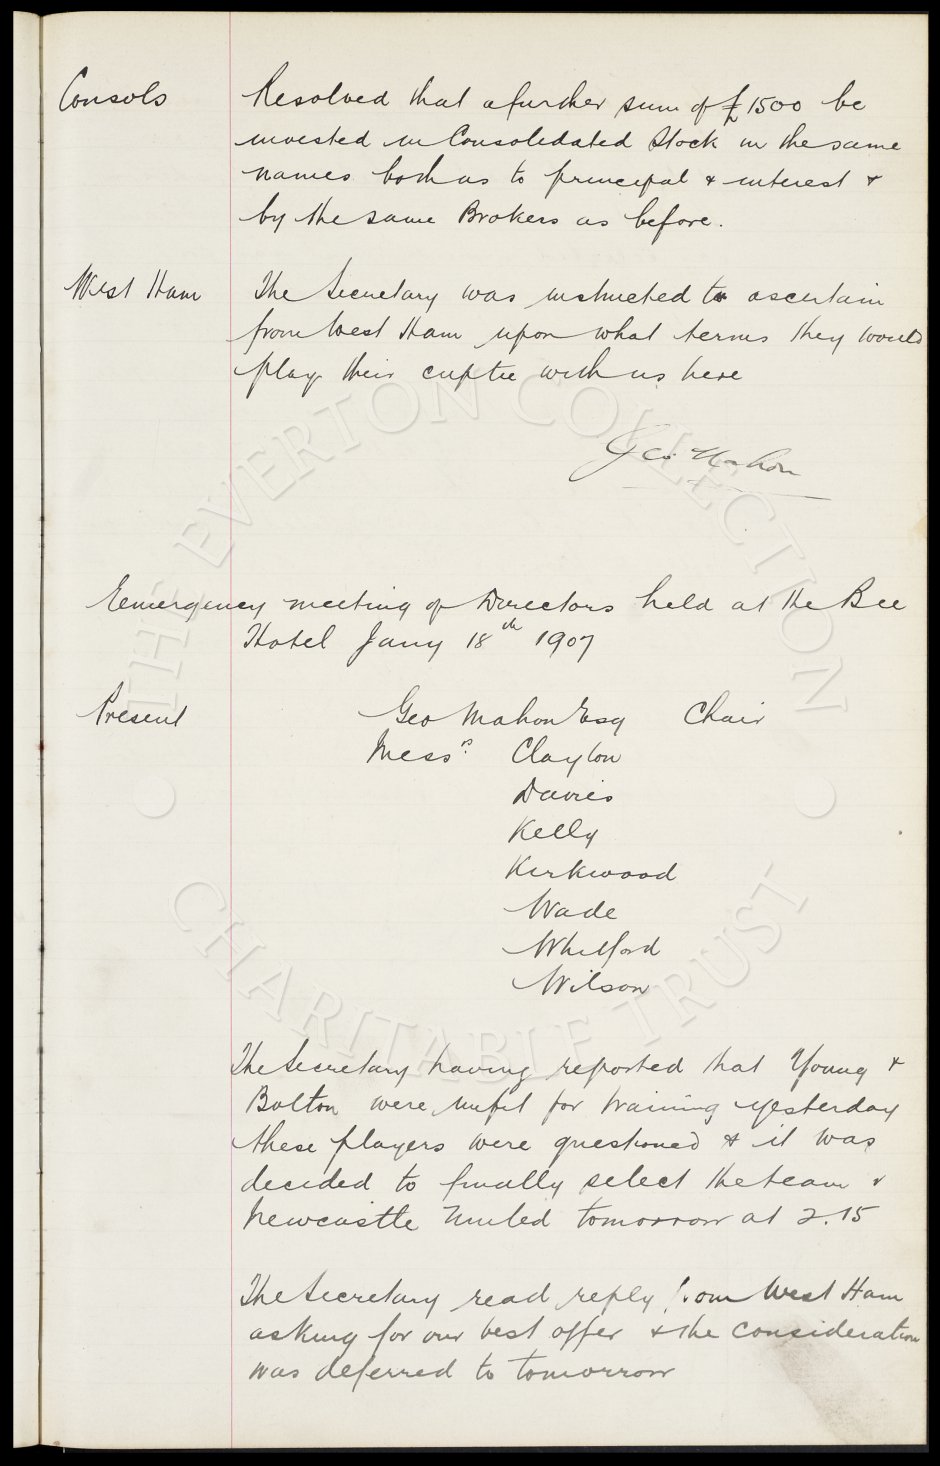 Consols Resolved that a further sum of £1500 be
invested in Consolidated Stock in the same
names both as to principal & interest &
by the same Brokers as before.
West Ham The Secretary was instructed to ascertain
from West Ham upon what terms they would
play their cuptie with us here
Geo. Mahon
Emergency meeting of Directors held at the Bee
Hotel Jany 18th 1907
Present Geo Mahon Esq Chair
Messrs. Clayton
Davies
Kelly
Kirkwood
Wade
Whitford
Wilson
The Secretary having reported that Young &
Bolton were unfit for training yesterday
these players were questioned & it was
decided to finally select the team v
Newcastle United tomorrow at 2.15
The Secretary read reply from West Ham
asking for our best offer & the consideration
was deferred to tomorrow
THE EVERTON COLLECTION
CHARITABLE TRUST